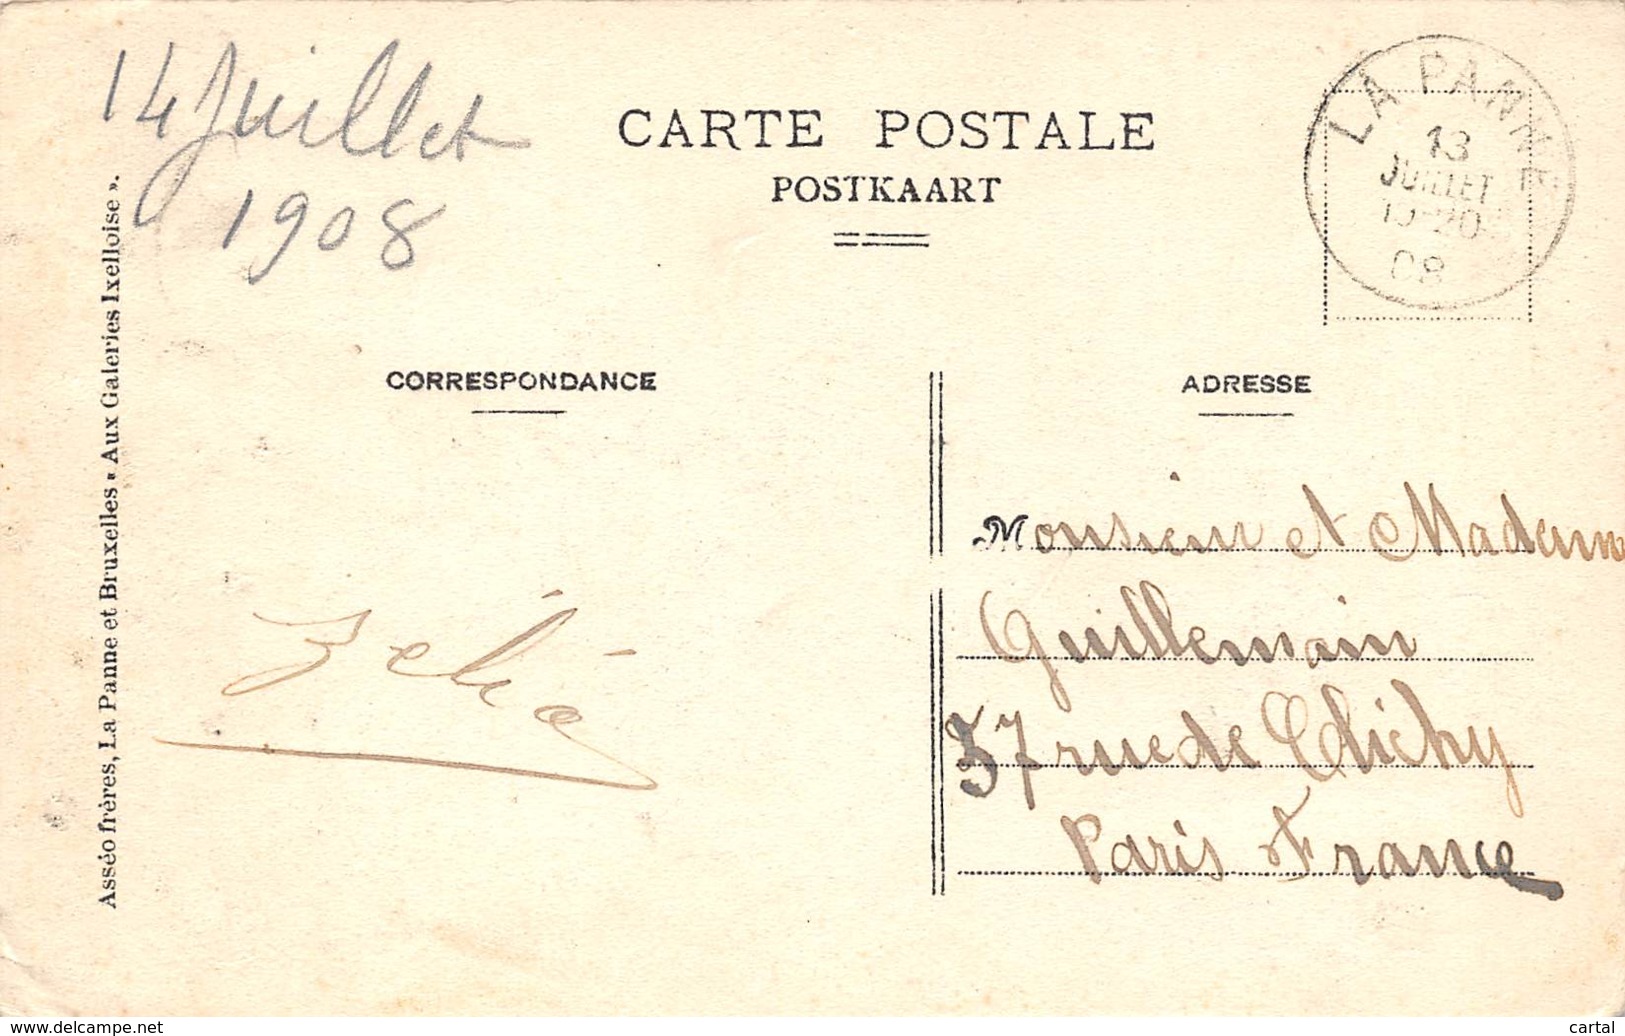 14 Juillet
1908
CARTE POSTALE
POSTKAART
LA PANNE
13
JUILLET
08
CORRESPONDANCE
ADRESSE
Asséo frères, La Panne et Bruxelles « Aux Galeries Ixelloise ».
Zélia
Monsieur et Madame
Guillemain
37 rue de Clichy
Paris France
www.delcampe.net
cartal